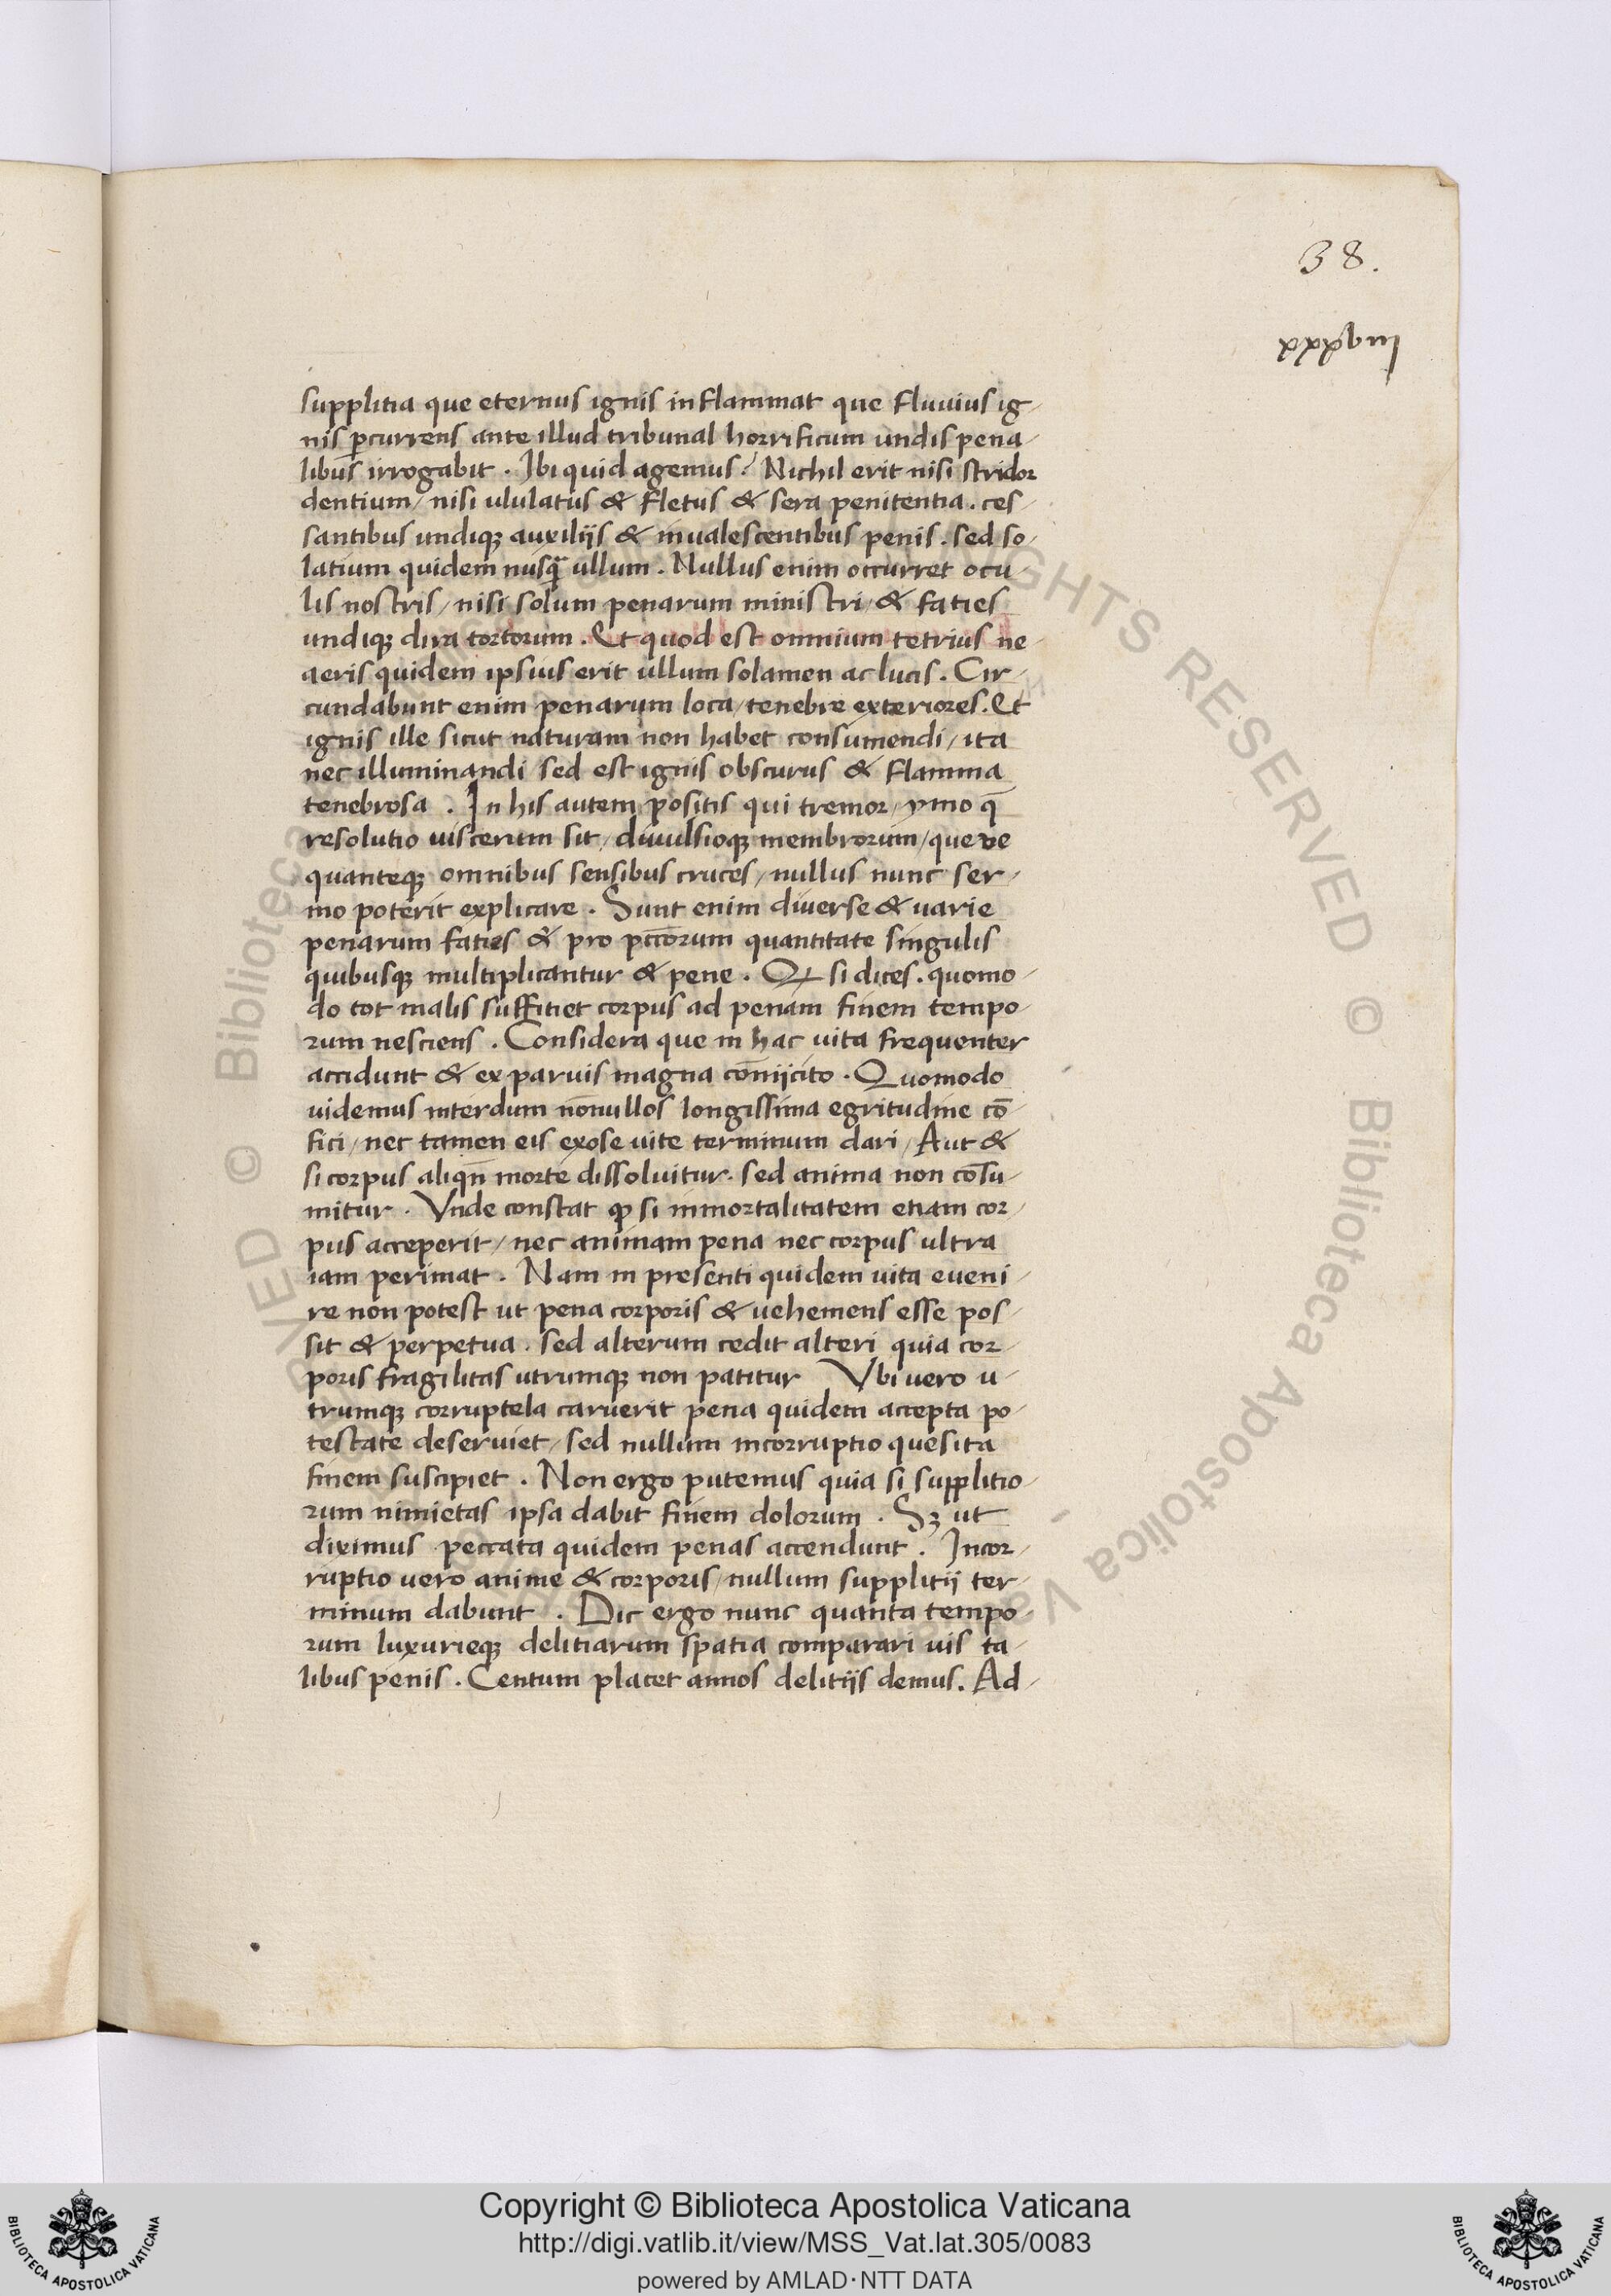 38.
lxxxviij
supplitia que eternus ignis inflammat que fluuius ig-
nis ꝑcurrens ante illud tribunal horrificum undis pena-
libus irrogabit . Ibi quid agemus? Nichil erit nisi stridor
dentium / nisi ululatus & fletus & sera penitentia . ces-
santibus undiqꝫ auxilijs & inualescentibus penis . sed so-
latium quidem nusq̃ ullum . Nullus enim occurret ocu-
lis nostris / nisi solum penarum ministri / & faties
undiqꝫ dira tortorum . Et quod est omnium tetrius ne-
aeris quidem ipsius erit ullum solamen ac lucis . Cir-
cundabunt enim penarum loca / tenebre exteriores . Et
ignis ille sicut naturam non habet consumendi / ita
nec illuminandi / sed est ignis obscurus & flamma
tenebrosa . In his autem positis qui tremor / ymo q̄
resolutio uiscerum sit / diuulsioqꝫ membrorum / que ve
quanteqꝫ omnibus sensibus cruces / nullus nunc ser-
mo poterit explicare . Sunt enim diuerse & uarie
penarum faties & pro pcc̄orum quantitate singulis
quibusqꝫ multiplicantur & pene . Qꝫ si dices . quomo-
do tot malis suffitiet corpus ad penam finem tempo-
rum nesciens . Considera que in hac uita frequenter
accidunt & ex paruis magna cōnijcito . Quomodo
uidemus interdum nōnullos longissima egritudine cō-
fici / nec tamen eis exose uite terminum dari / Aut &
si corpus aliqn̄ morte dissoluitur . sed anima non cōsu-
mitur . Vnde constat ꝙ si inmortalitatem etiam cor-
pus acceperit / nec animam pena nec corpus ultra
iam perimat . Nam in presenti quidem uita eueni-
re non potest ut pena corporis & uehemens esse pos-
sit & perpetua . sed alterum cedit alteri quia cor-
poris fragilitas utrumqꝫ non patitur Vbi uero u-
trumqꝫ corruptela caruerit pena quidem accepta po-
testate deseruiet / sed nullum incorruptio quesita
finem suscipiet . Non ergo putemus quia si supplitio-
rum nimietas ipsa dabit finem dolorum . Sꝫ ut
diximus peccata quidem penas accendunt . Incor-
ruptio uero anime & corporis / nullum supplitij ter-
minum dabunt . Dic ergo nunc quanta tempo-
rum luxurieqꝫ delitiarum spatia comparari uis ta-
libus penis . Centum placet annos delitijs demus . Ad-
Copyright © Biblioteca Apostolica Vaticana
http://digi.vatlib.it/view/MSS_Vat.lat.305/0083
powered by AMLAD·NTT DATA